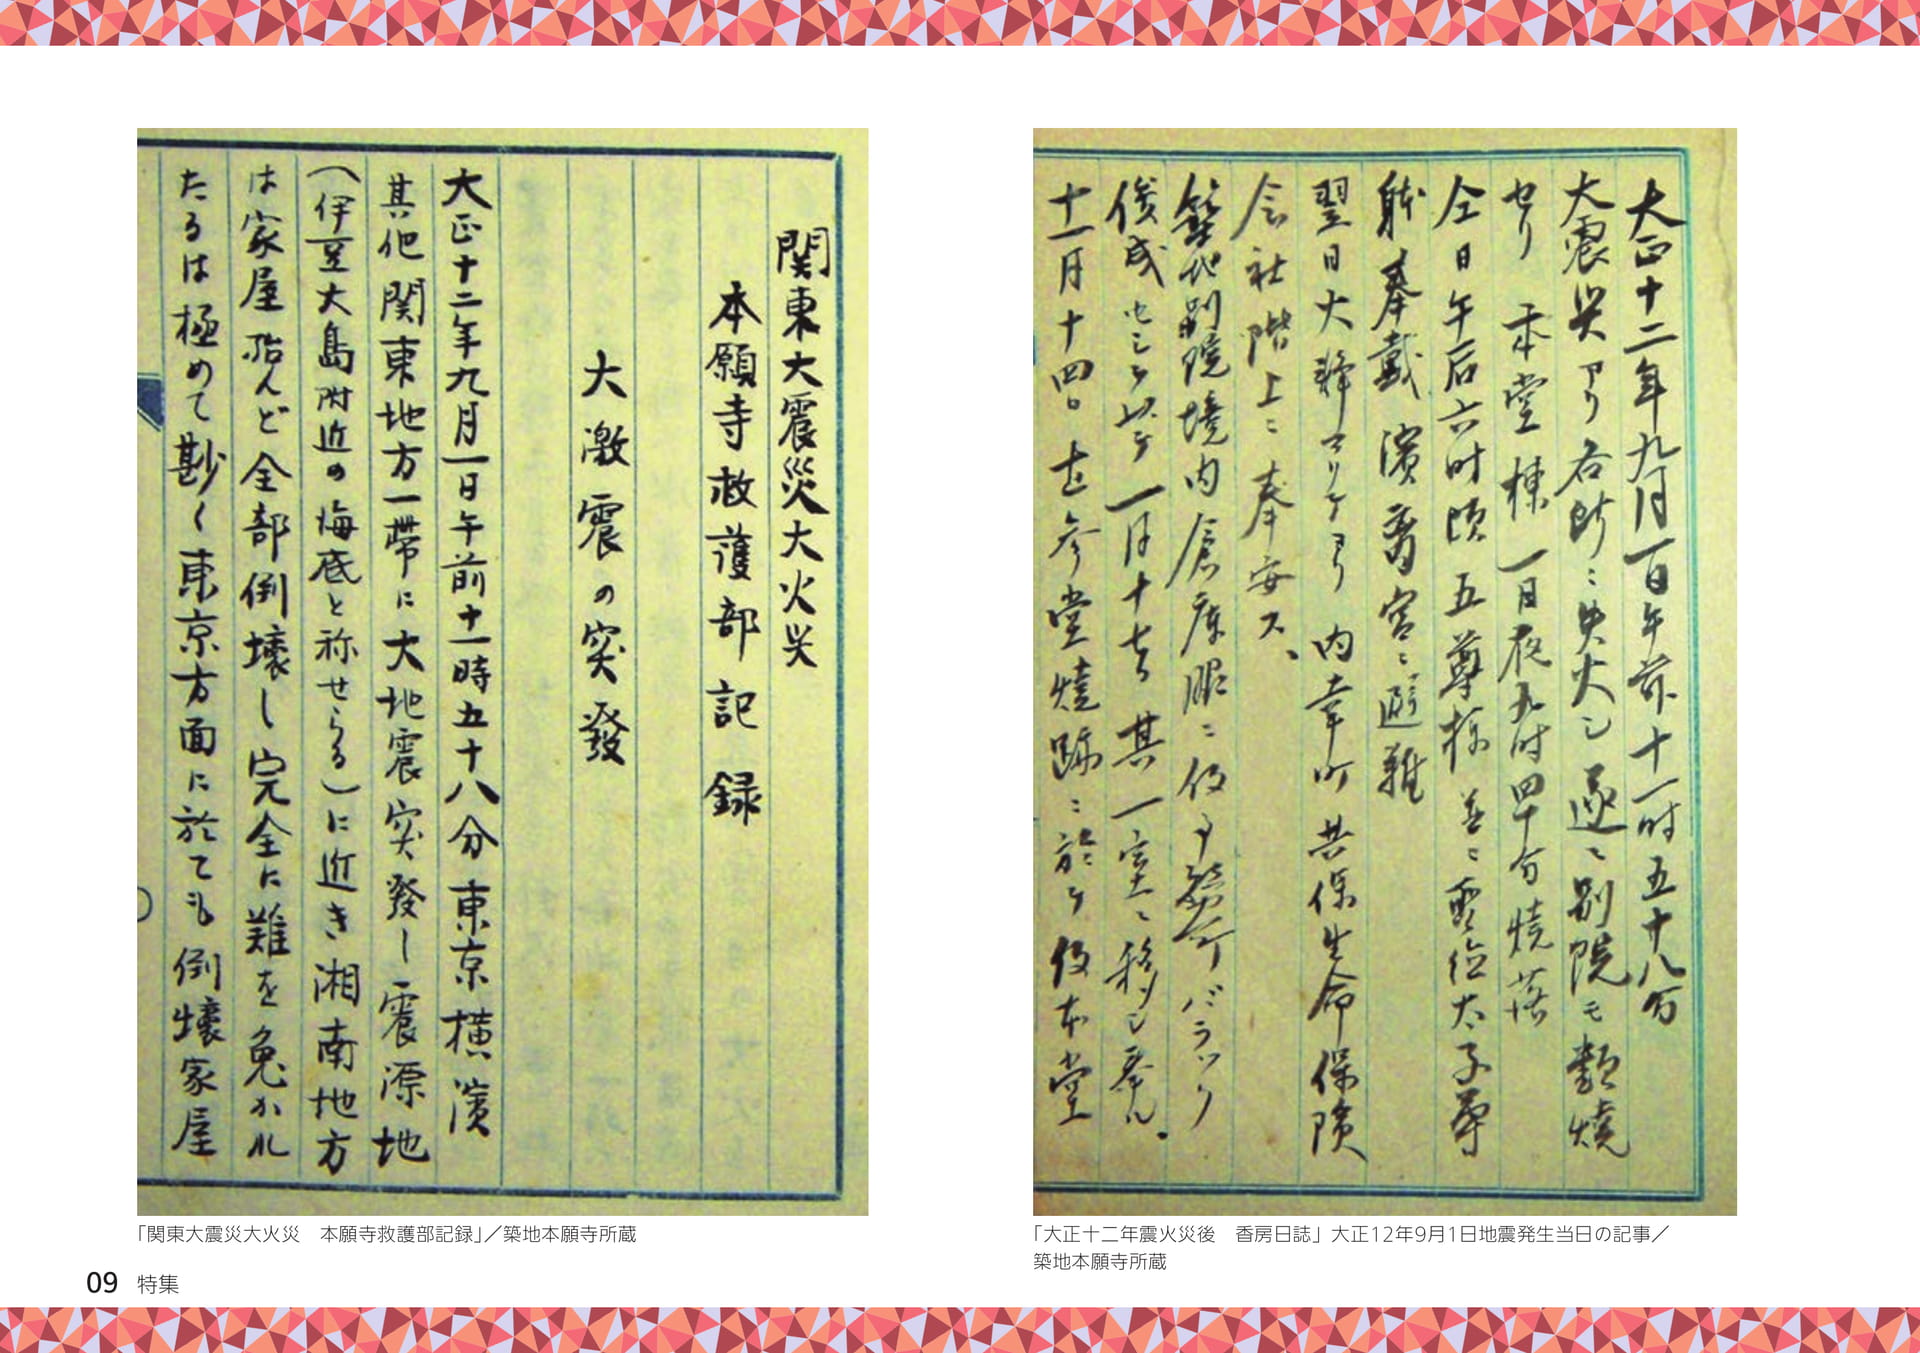 関東大震災大火災
本願寺救護部記録
大激震の突発
大正十二年九月一日午前十一時五十八分東京横濱
其他関東地方一帯に大地震突発し震源地
(伊豆大島附近の海底と称せらる)に近き湘南地方
は家屋殆んど全部倒壊し完全に難を免かれ
たるは極めて尠く東京方面に於ても倒壊家屋
「関東大震災大火災　本願寺救護部記録」／築地本願寺所蔵
大正十二年九月一日午前十一时五十八分
大震災アリ各所ニ失火シ遂ニ別院モ類焼
セリ 本堂棟一日夜九时四十分焼落
仝日午后六时頃五尊様並ニ霊位太子尊
躰奉戴濱離宮ニ避難
翌日火静マリケヨリ内幸町共保生命保険
会社階上ニ奉安ス、
築地別院境内倉庫脇ニ仮事務所バラック
俊成セシヲ以テ一月十七日其一室ニ移シ奉ル。
十一月十四日 参堂焼跡ニ於ケ仮本堂
「大正十二年震火災後　香房日誌」大正12年9月1日地震発生当日の記事／
築地本願寺所蔵
09 特集